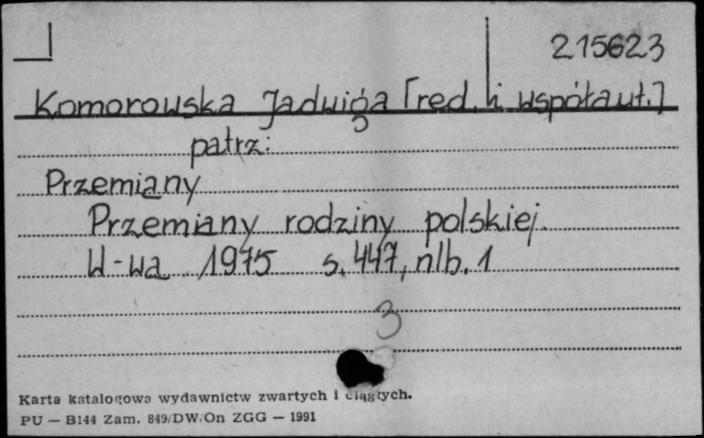 215623
Komorowska Jadwiga [red. i współaut.]
patrz:
Przemiany
Przemiany rodziny polskiej.
W-wa 1975 s. 447, nlb. 1
3
Karta katalogowa wydawnictw zwartych i ciągłych.
PU — B144 Zam. 849/DW/On ZGG — 1991